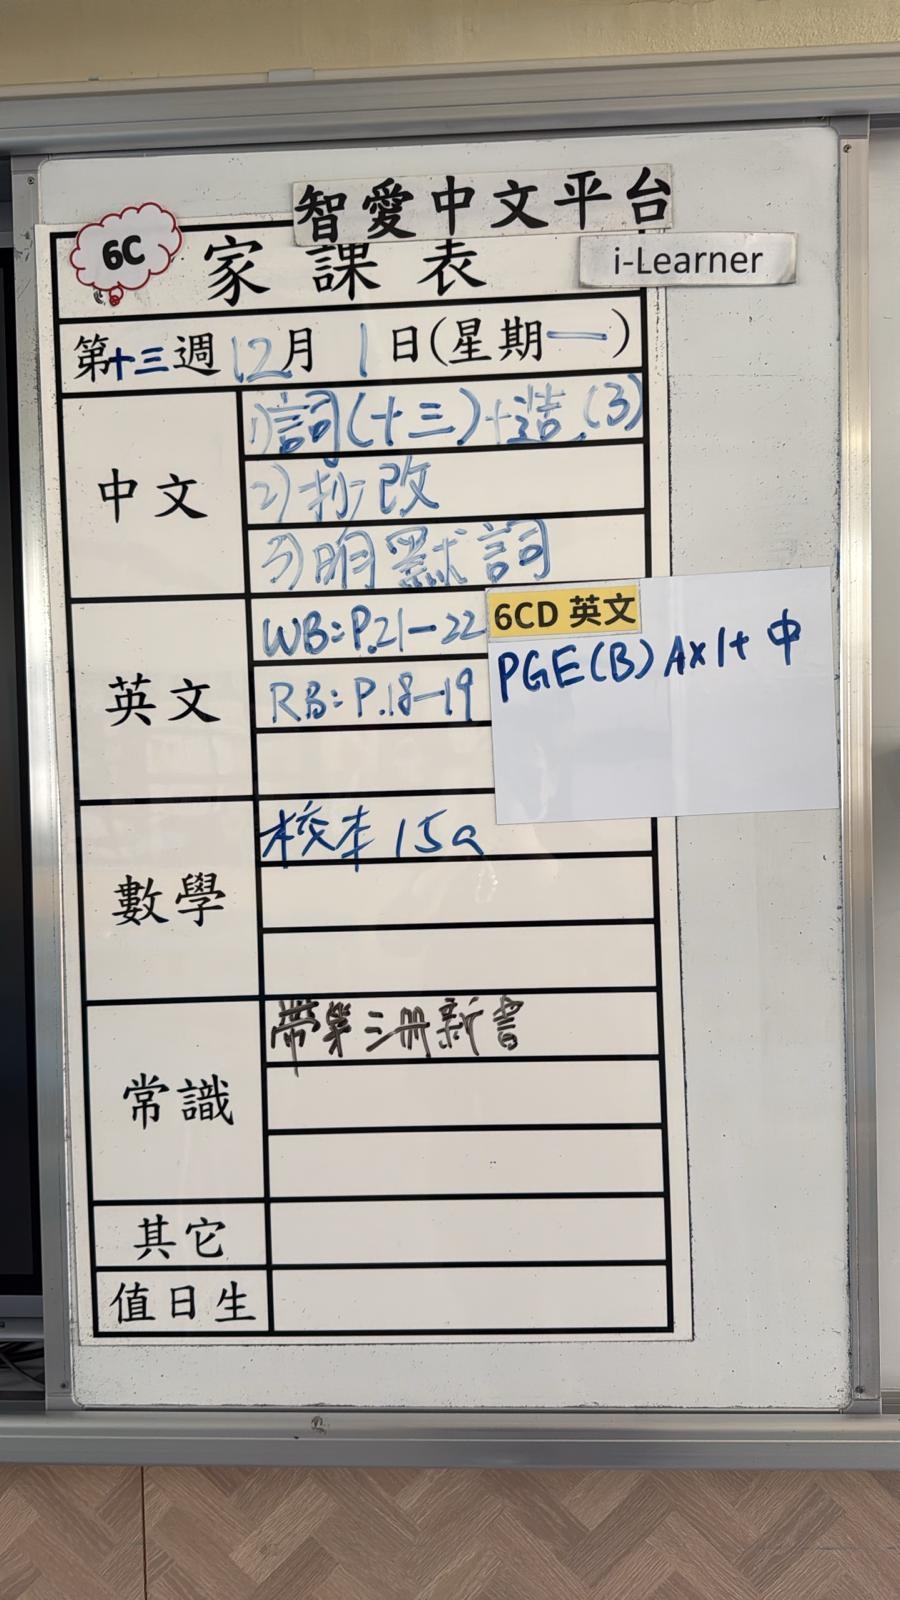 智愛中文平台
6C
家課表
i-Learner
第十三週12月1日(星期一)
中文
1)詞(十三)+造(3)
2)抄改
3)明默詞
英文
WB:P.21-22
RB:P.18-19
6CD 英文
PGE(B)Ax1+中
數學
校本15a
常識
帶第三冊新書
其它
值日生